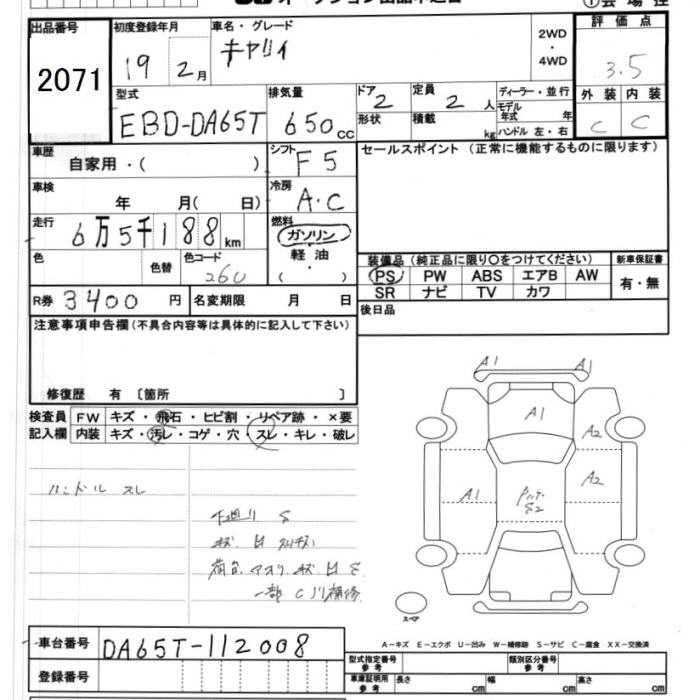 出品番号 2071
初度登録年月 19 2月
車名・グレード キャリイ
2WD・4WD
評価点 3.5
外装 C 内装 C
型式 EBD-DA65T
排気量 650cc
ドア 2 形状
定員 2人 積載 kg
ディーラー・並行
モデル年式 年
ハンドル 左・右
車歴 自家用・( )
シフト F5
セールスポイント (正常に機能するものに限ります)
車検 年 月( 日)
冷房 A・C
走行 6万5千188km
燃料 ガソリン 軽油 ・ ( )
色 色替 色コード 26U
装備品 (純正品に限り○をつけてください) 新車保証書
PS PW ABS エアB AW 有・無
SR ナビ TV カワ
R券 3400円 名変期限 月 日
後日品
注意事項申告欄(不具合内容等は具体的に記入して下さい)
修復歴 有 〔箇所 〕
検査員 FW キズ・飛石・ヒビ割・リペア跡・×要
記入欄 内装 キズ・汚レ・コゲ・穴・スレ・キレ・破レ
A1 A1
A1
A2
A1 A2
S2
ハンドル スレ
下廻り S
荷台
一部 C 補修
スペア
車台番号 DA65T-112008
登録番号
A-キズ E-エクボ U-凹み W-補修跡 S-サビ C-腐食 XX-交換済
型式指定番号 参考 類別区分番号 参考
車庫証明用 参考 長さ cm 幅 cm 高さ cm